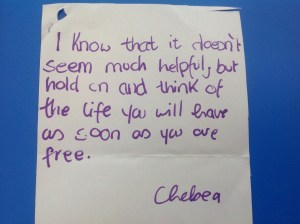 I know that it doesn't
seem much helpful, but
hold on and think of
the life you will have
as soon as you are
free.
Chelsea